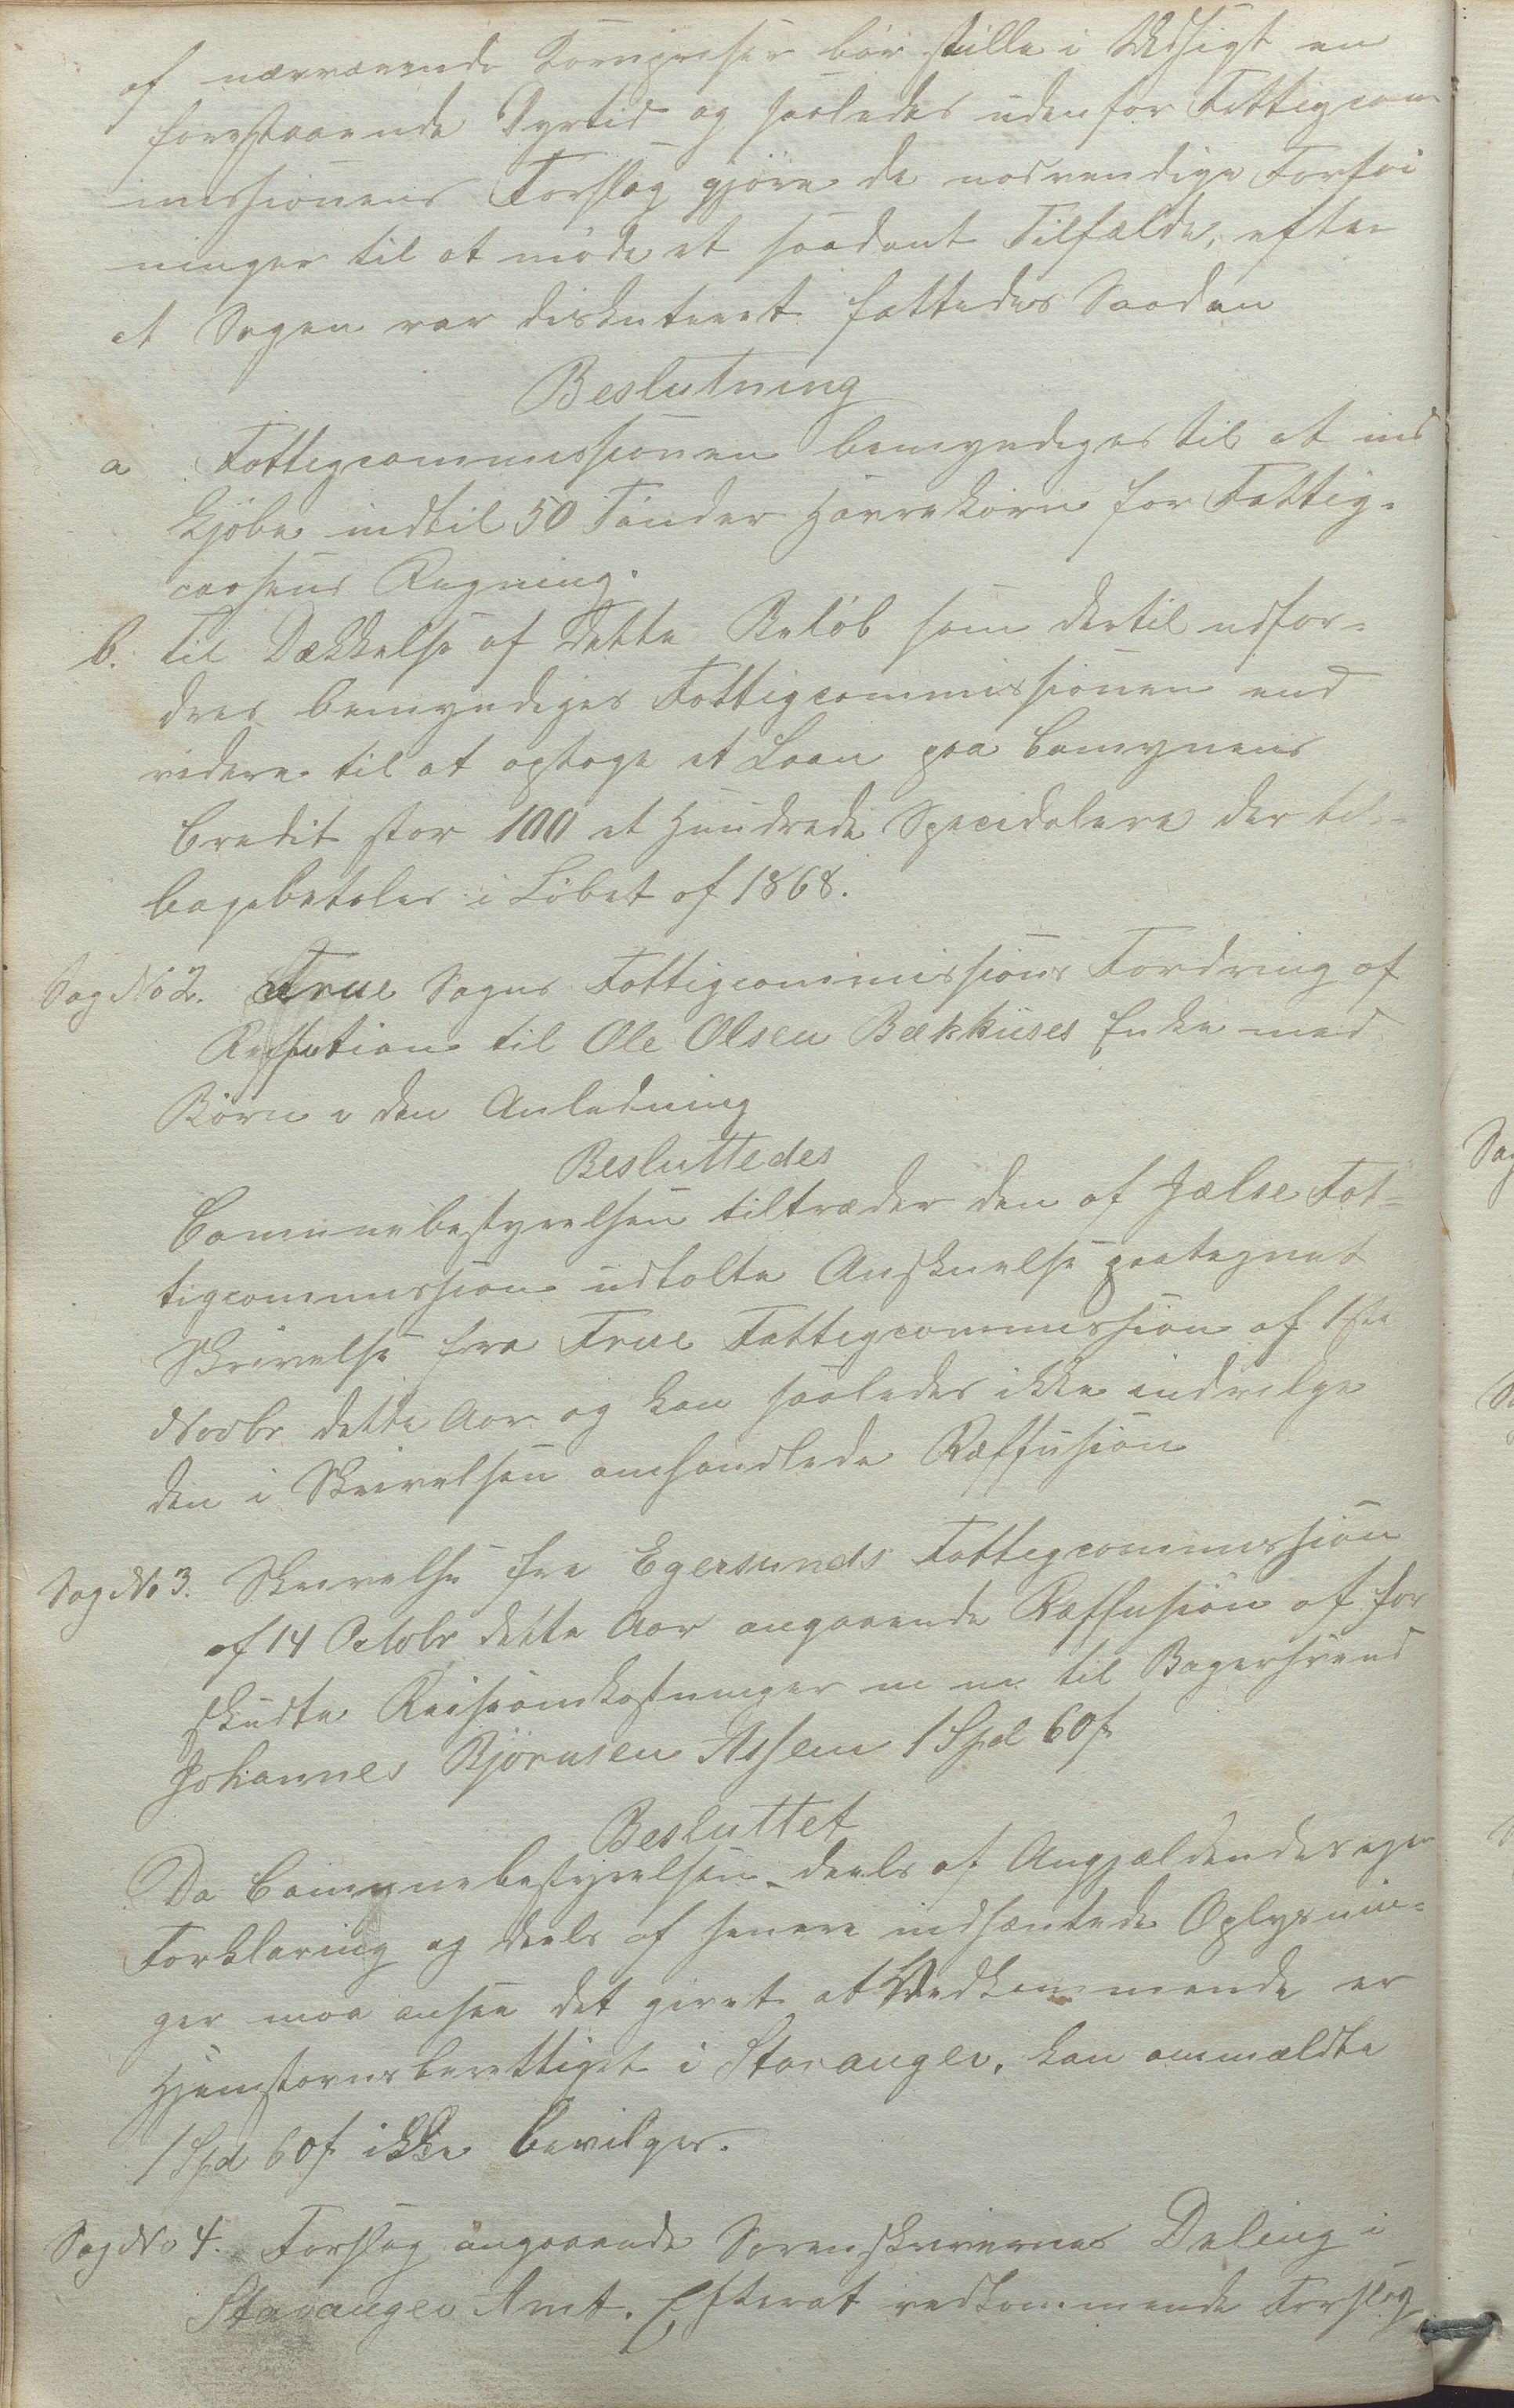 af nærværende Kornpriser bør stille i Udsigt en
forestaaende Dyrtid og saaledes udenfor Fattigcom
missionens Forslag gjøre de nødvendige Forføi
ninger til at møde et saadant Tilfælde, efter
at Sagen var diskuteret fattedes Saadan
Beslutning
a Fattigcommissionen bemyndiges til at ind
kjøbe indtil 50 Tønder Havrekorn for Fattig-
cassens Regning.
b. Til Dækkelse af dette Beløb som dertil udfor-
dres bemyndiges Fattigcommissionen end
videre til at optage et Laan paa Comynens
Credit stor 100 et Hundrede Speciedalere der til-
bagebetales i Løbet af 1868.
Sag No 2. Frue Sogns Fattigcommissions Fordring af
Reffution til Ole Olsen Bækkuses Enke med
Børn i den Anledning
Besluttedes
Comunebestyrelsen tiltræder den af Jælse Fat-
tigcommission udtalte Anskuelse paategnet
Skrivelse fra Frue Fattigcommission af 1ste
Novbr dette Aar og kan saaledes ikke indvilge
den i Skrivelsen omhandlede Ræffusion
Sag No 3. Skrivelse fra Egersunds Fattigcommission
af 14 Octobr dette Aar angaaende Ræffusion af for
skudte Reiseomkostninger m m til Bagersvend
Johannes Bjørnsen Assem 1 Spd 60 s
Besluttet
Da Comynebestyrelsen deels af Angjældendes egen
Forklaring og deels af senere indhæntede Oplysnin-
ger maa ansee det givet at Vedkommende er
Hjemstavnsberettiget i Stavanger, kan ommældte
1 Spd 60 s ikke bevilges.
Sag No 4. Forslag angaaende Sorenskrivernes Deling i
Stavanger Amt. Efterat vedkommende Forslag